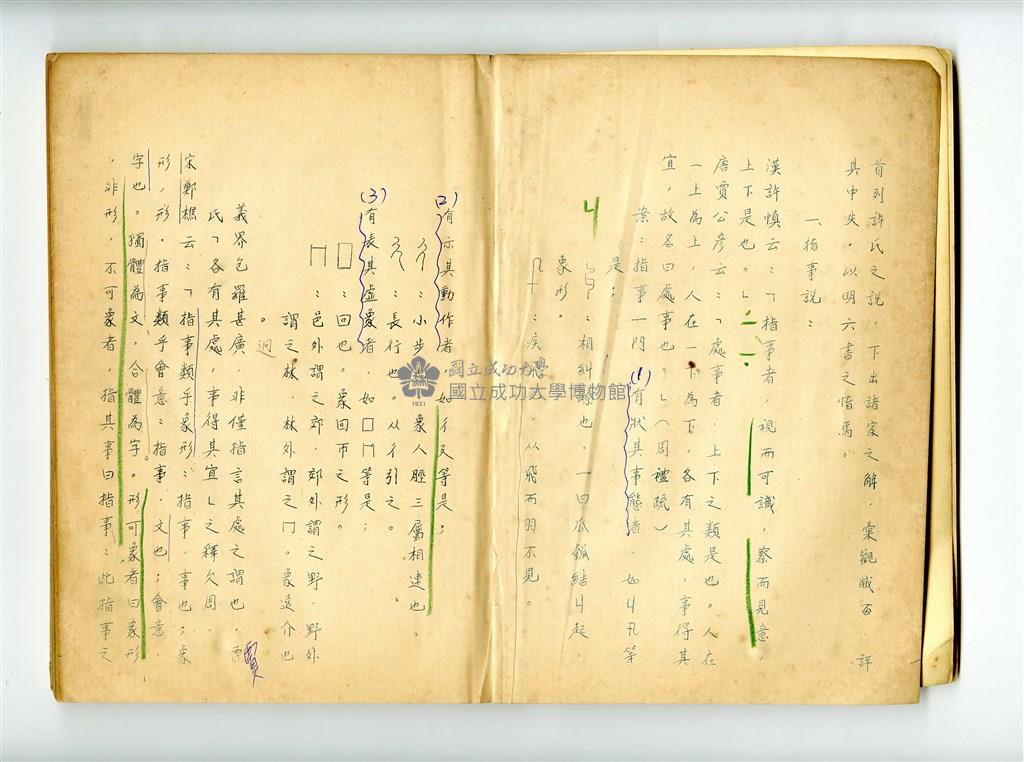 首列許氏之說，下出諸家之解，彙觀臧否，詳
其中失，以明六書之恉焉。
一、指事說：
漢許慎云：「指事者，視而可識，察而見意，
上下是也。」
唐賈公彥云：「處事者，上下之類是也。人在
一上為上，人在一下為下，各有其處，事得其
宜，故名曰處事也。」（周禮疏）
案：指事一門，(1)有狀其事態者，如丩卂等
是；
4
：相糾繚也。一曰瓜瓠結丩起。
象形。
：疾飛也。从飛而羽不見。
(2)有示其動作者，如彳廴等是；
彳：小步也。象人脛三屬相連也。
廴：長行也。从彳引之。
(3)有表其虛象者，如囗冂等是；
囗：回也。象回帀之形。
冂：邑外謂之郊，郊外謂之野，野外
謂之林，林外謂之冂。象遠介也
。
義界包羅甚廣，非僅指言其處之謂也，賈
氏「各有其處，事得其宜」之釋欠周。
宋鄭樵云：「指事類乎象形：指事，事也；象
形，形。指事類乎會意：指事，文也；會意，
字也。獨體為文，合體為字。形可象者曰象形
，非形，不可象者，指其事曰指事：此指事之
國立成功大學
國立成功大學博物館
1931